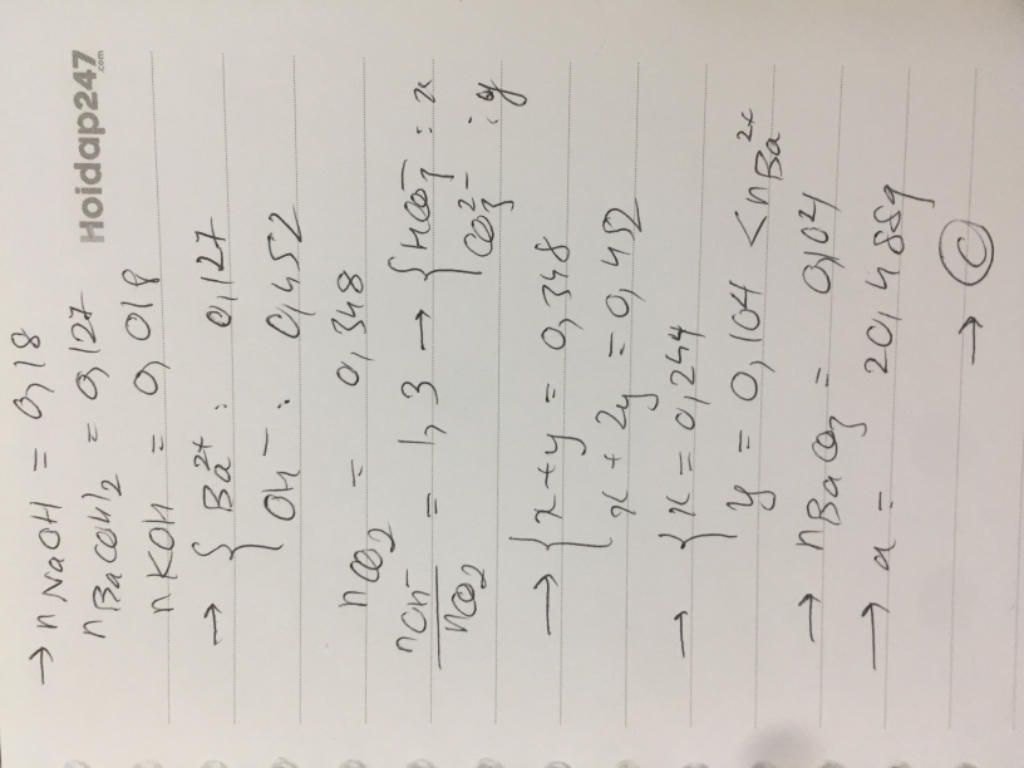 Hoidap247.com
→ nNaOH = 0,18
nBa(OH)2 = 0,127
nKOH = 0,018
→ { Ba2+ : 0,127
OH- : 0,452
nCO2 = 0,348
nOH-/nCO2 = 1,3 → { HCO3- : x
CO3 2- : y
→ { x + y = 0,348
x + 2y = 0,452
→ { x = 0,244
y = 0,104 < nBa2+
→ nBaCO3 = 0,104
→ a = 20,488g
→ C